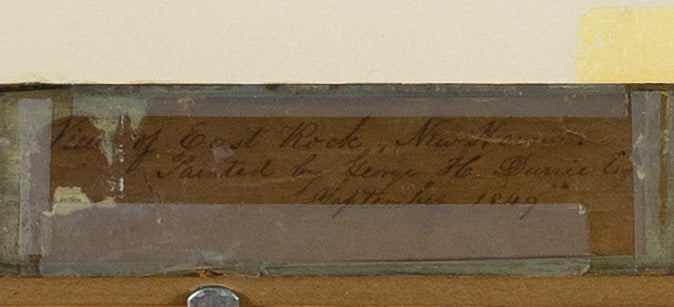 View of East Rock, New Haven.
Painted by George H. Durrie Esq
September 1849